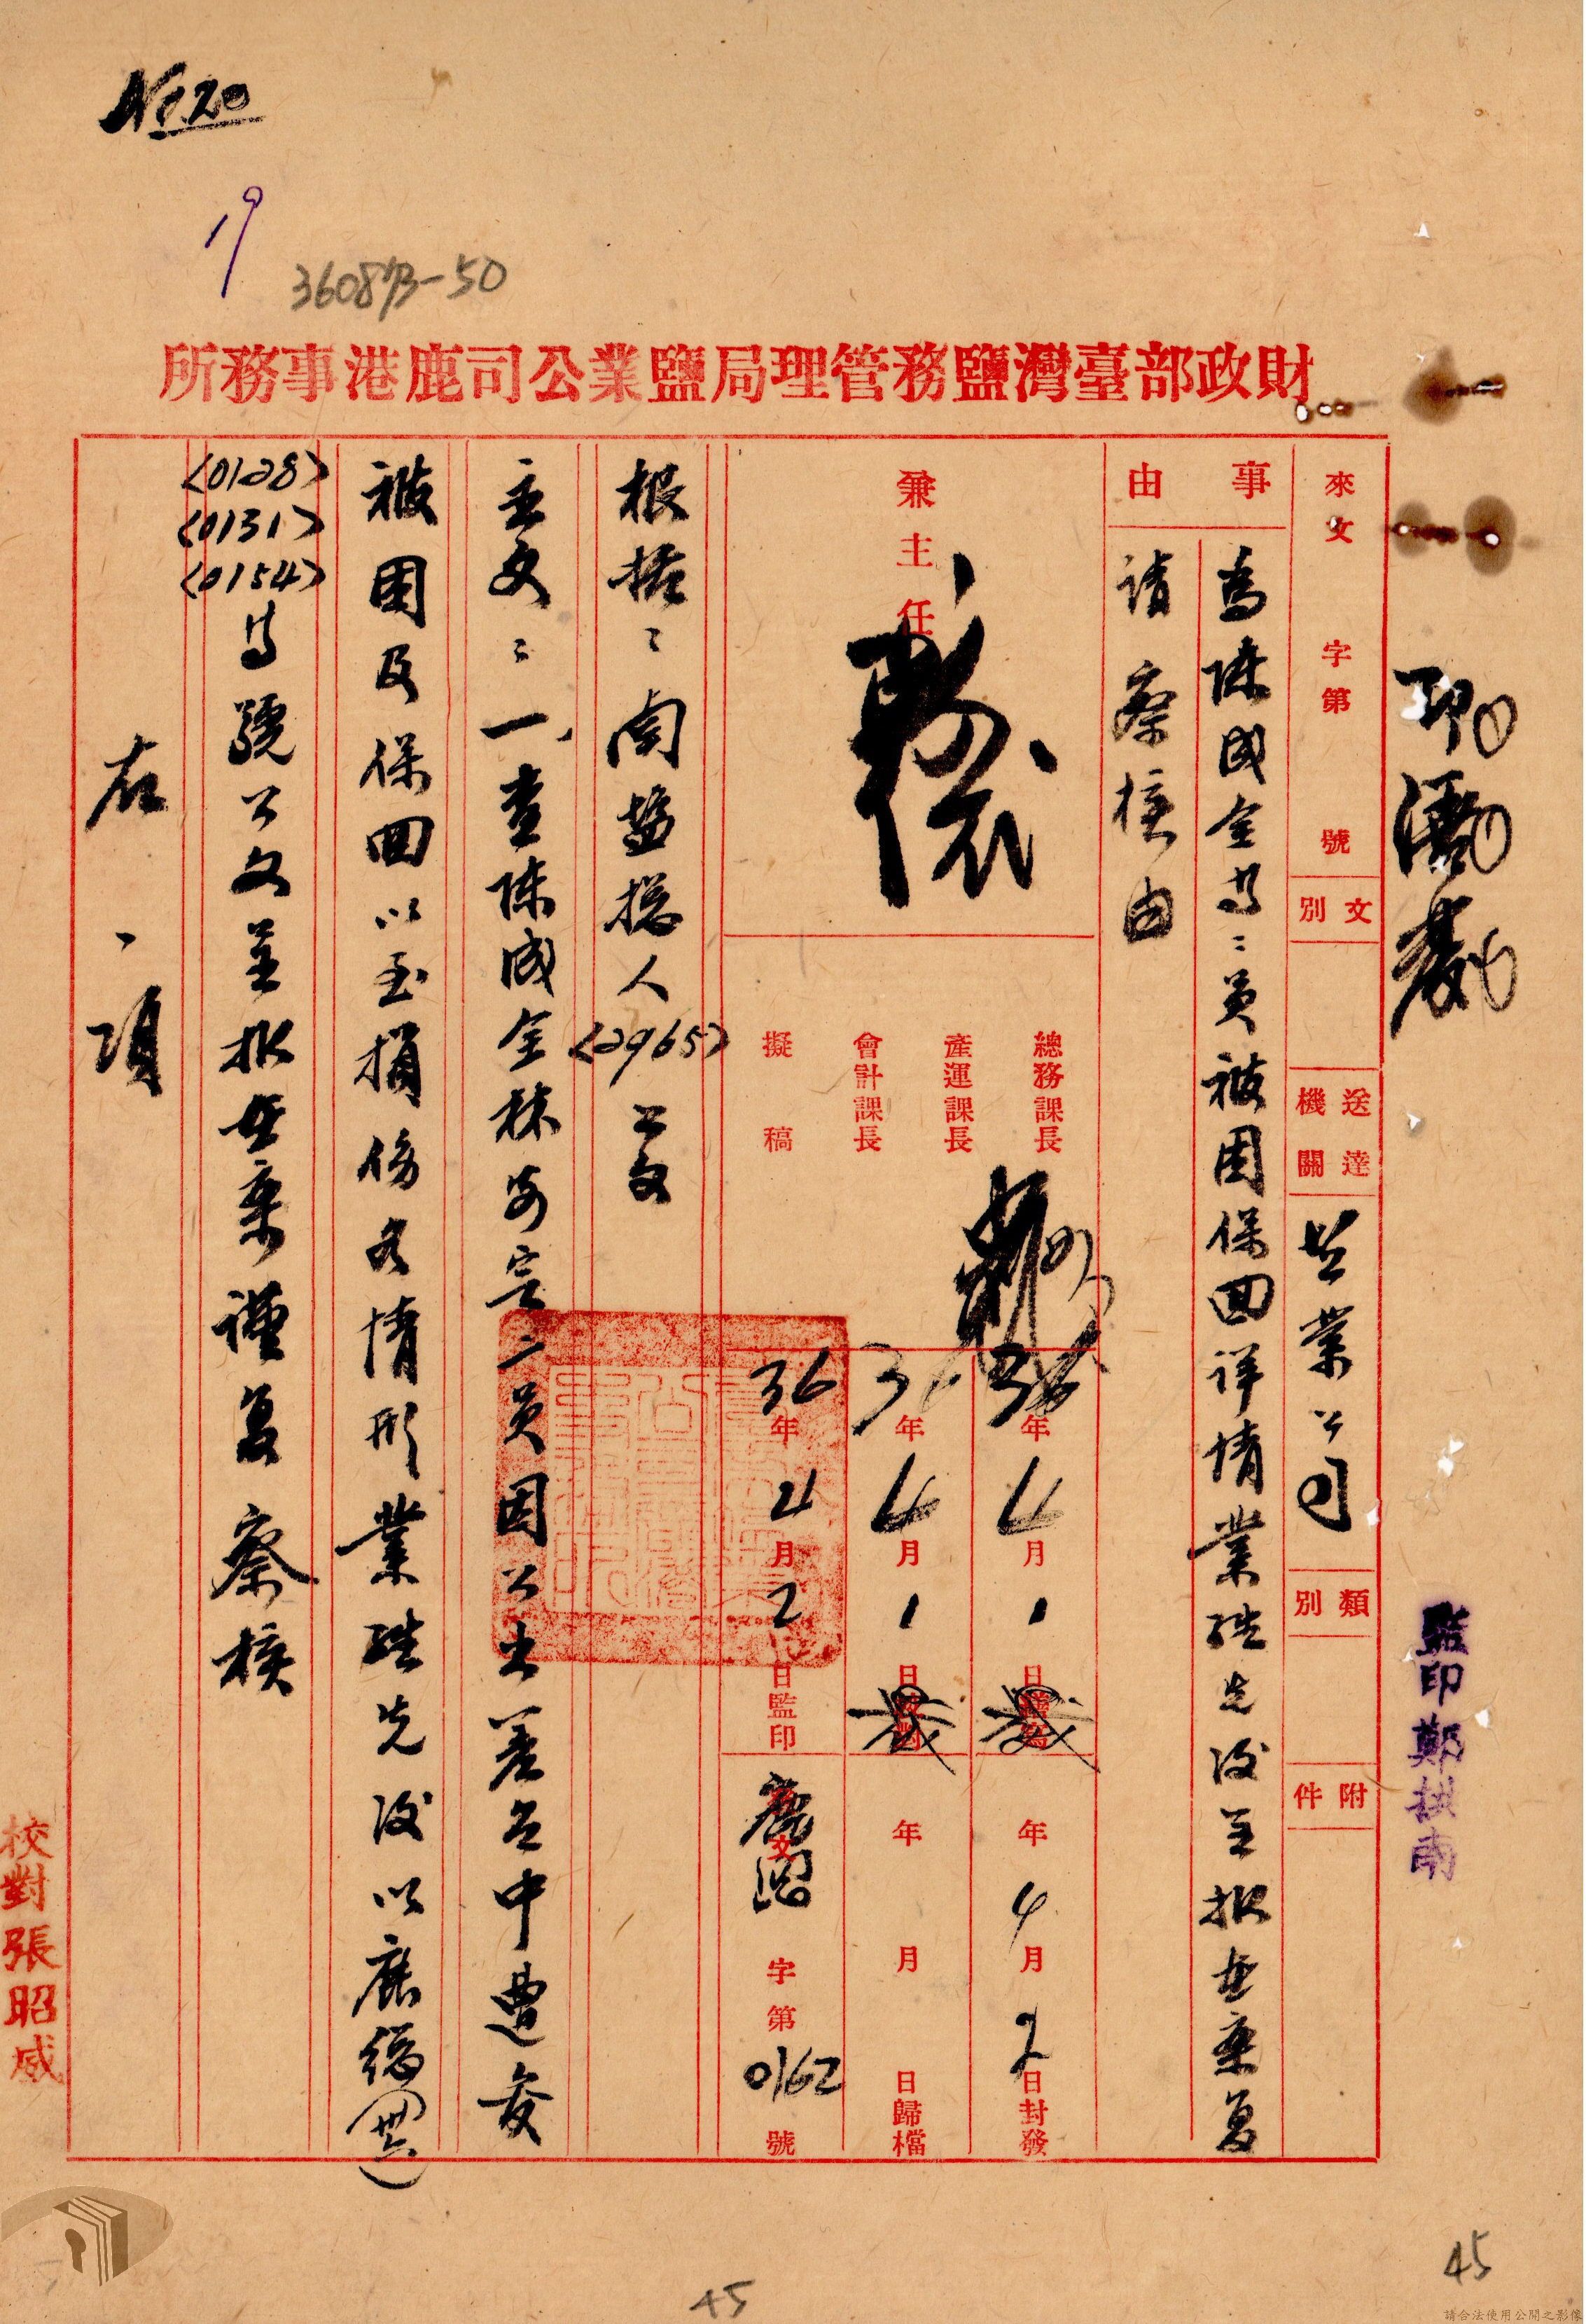 No.20
19
360873-50
財政部臺灣鹽務管理局鹽業公司鹿港事務所
來文 字第 號
文別
送達機關 鹽業公司
類別
附件
事由
為陳成金等二員被困保回詳情業經先後呈報在案复
請察核由
兼主任
總務課長
產運課長
會計課長
擬稿
36年4月1日繕寫
36年4月1日校對
36年4月2日監印
年4月2日封發
年 月 日歸檔
發文鹿總字第0162號
根據:南鹽總人<2965>公文
主文:一、查陳成金林安定二員因公出差台中遭變
被困及保回以至損傷各情形業經先後以鹿總(卅六)
<0128>
<0131>
<0154>等號公文呈報在案謹复察核
右、項
監印鄭拱南
校對張昭威
45
45
請合法使用公開之影像